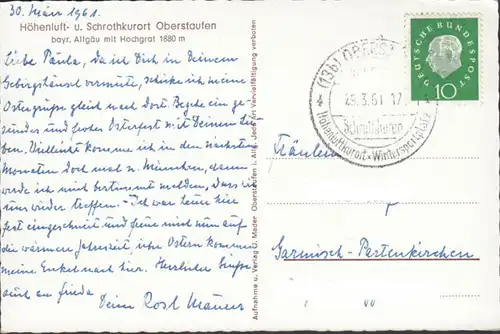 30. März 1961.
Höhenluft- u. Schrothkurort Oberstaufen
bayr. Allgäu mit Hochgrat 1880 m
Liebe Paula, da ich Dich in Deinem
Gebirgshäusl vermute, schicke ich meine
Ostergrüße gleich nach dort. Begehe ein ge-
sundes und frohes Osterfest mit Deinen Lie-
ben. Vielleicht komme ich in den nächsten
Monaten doch mal n. München, dann
werde ich mich bestimmt melden, dass wir
uns wieder treffen. - Ich war heuer hier
fest eingeschneit und freue mich nun auf
die wärmere Jahreszeit. Über Ostern kommen
meine Enkel nach hier. Herzliche Grüße
auch an Frieda
Deine Rosl
Aufnahme u. Verlag U. Mader Oberstaufen i. Allg. Jede Art Vervielfältigung verboten
DEUTSCHE BUNDESPOST
10
(13b) OBERST
.3.61 17
Schrothkuren
Höhenluftkurort × Wintersportplatz
Fräulein
Garmisch-Partenkirchen